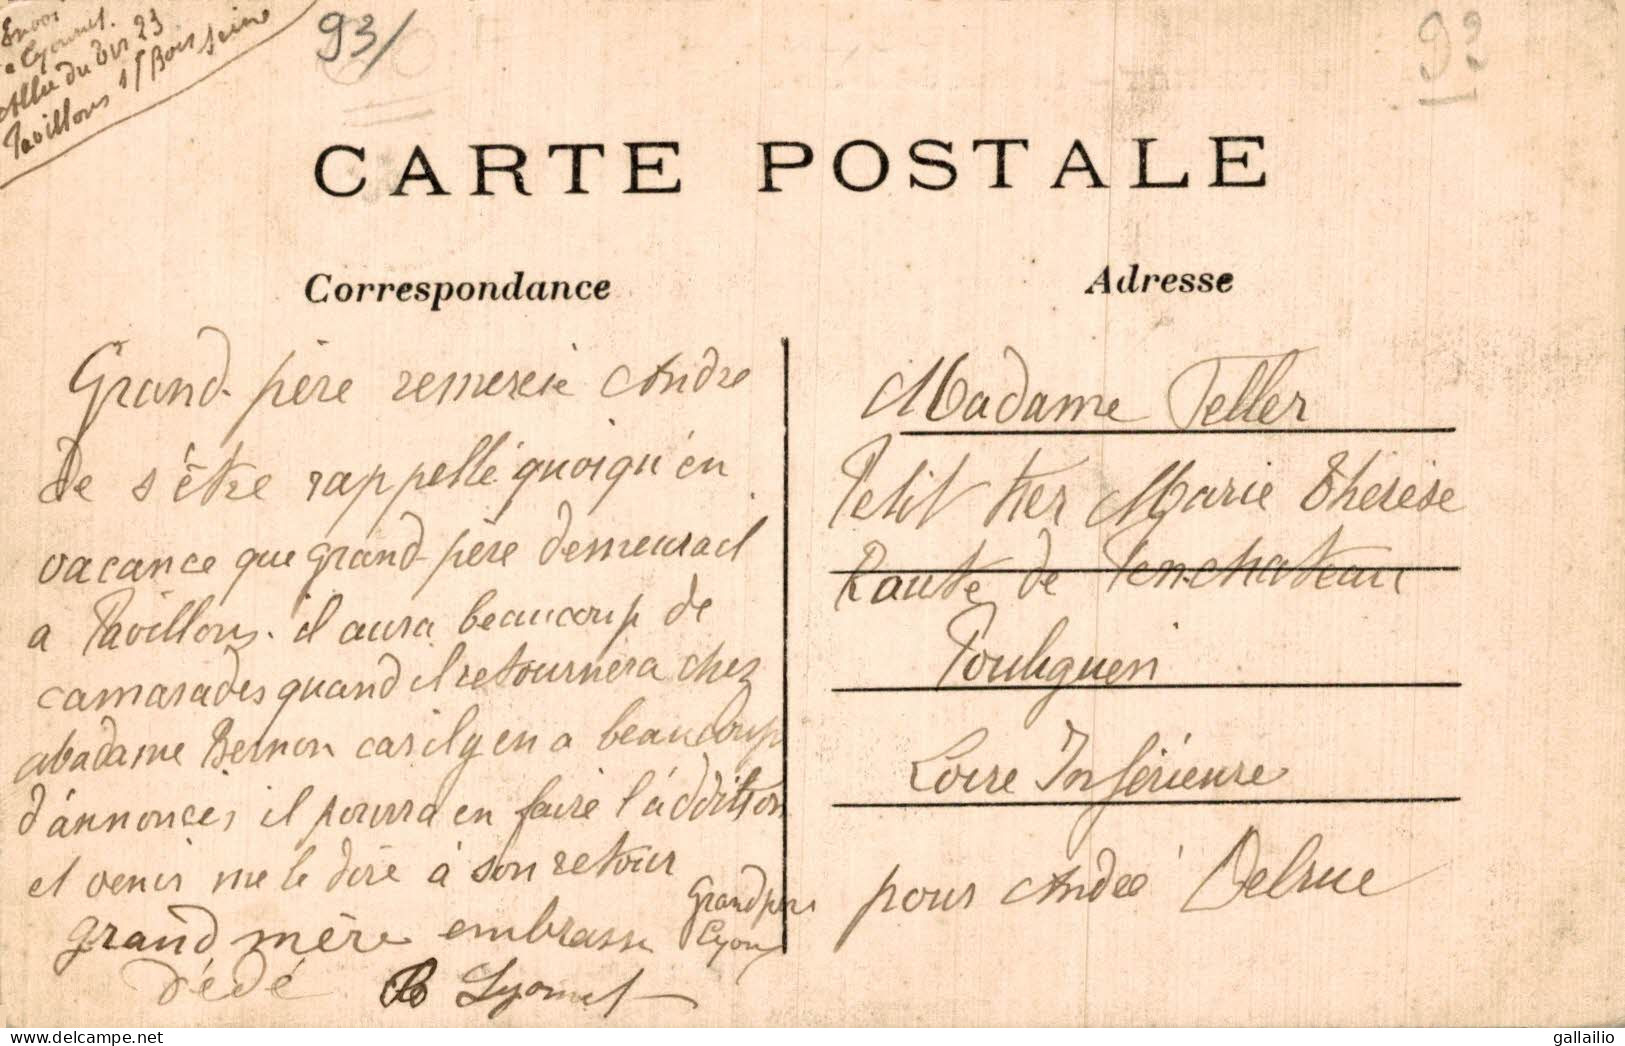 Envoi
Lyonnet.
Allée du Tir 23
Pavillons s/ Bois Seine
93/
93
CARTE POSTALE
Correspondance
Adresse
Grand-père remercie André
de s'être rappellé quoiqu'en
vacance que grand-père demeurait
a Pavillons. il aura beaucoup de
camarades quand il retournera chez
Madame Bernon car il y en a beaucoup
d'annonces il pourra en faire l'addition
et venir me le dire à son retour
Grand père
Lyon
grand mère embrasse
dédé Lyonnet
Madame Teller
Petit Ker Marie Thérèse
Route de Penchateau
Pouliguen
Loire Inférieure
pour André Delrue
gallailio